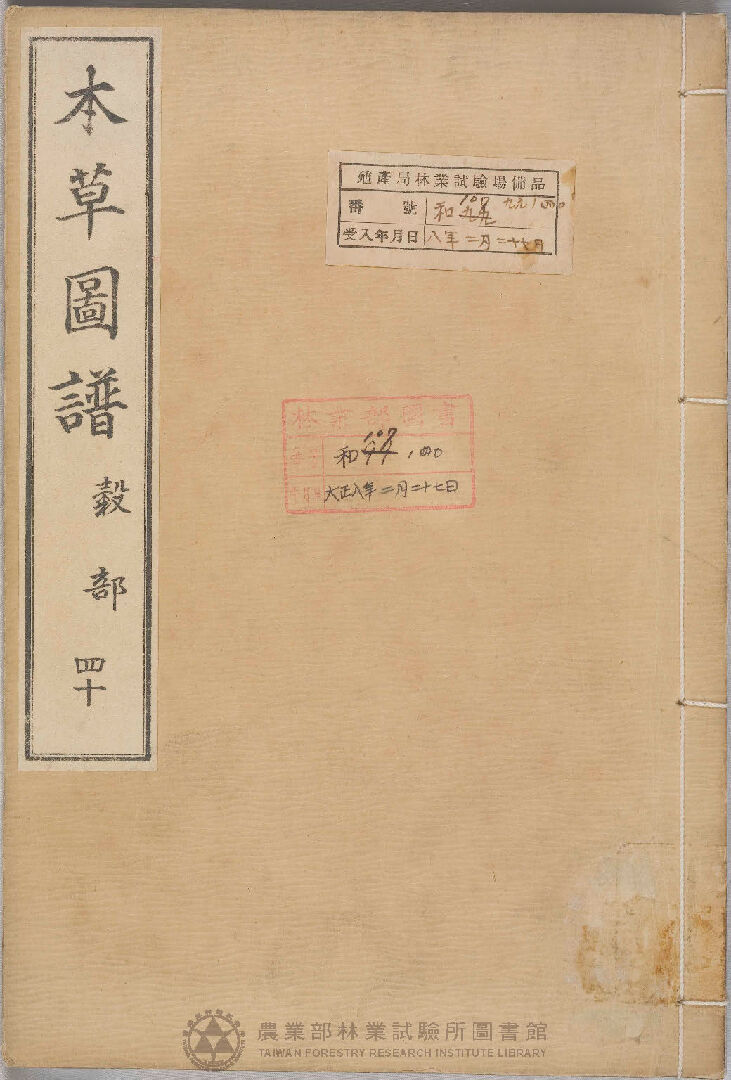 本草圖譜 穀部 四十
殖產局林業試驗場備品
番號 和
受入年月日 八年二月二十七日
林業部圖書
和
大正八年二月二十七日
農業部林業試驗所圖書館
TAIWAN FORESTRY RESEARCH INSTITUTE LIBRARY